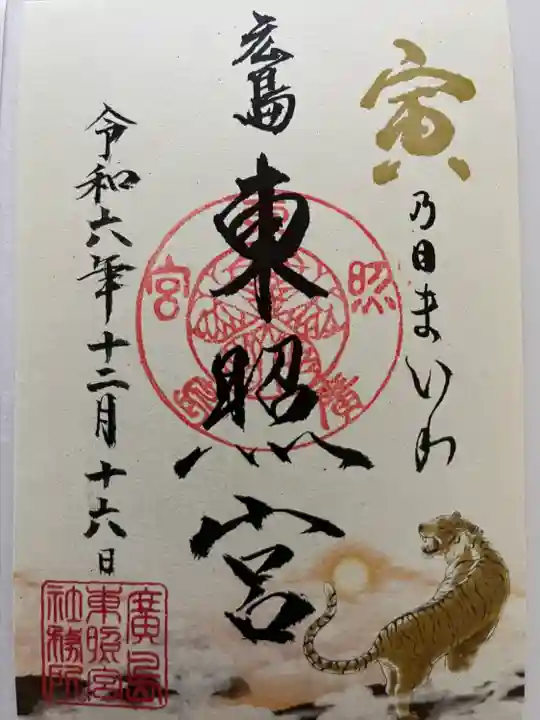 寅
乃日まいり
広島
東照宮
令和六年十二月十六日
廣島
東照宮
社務所